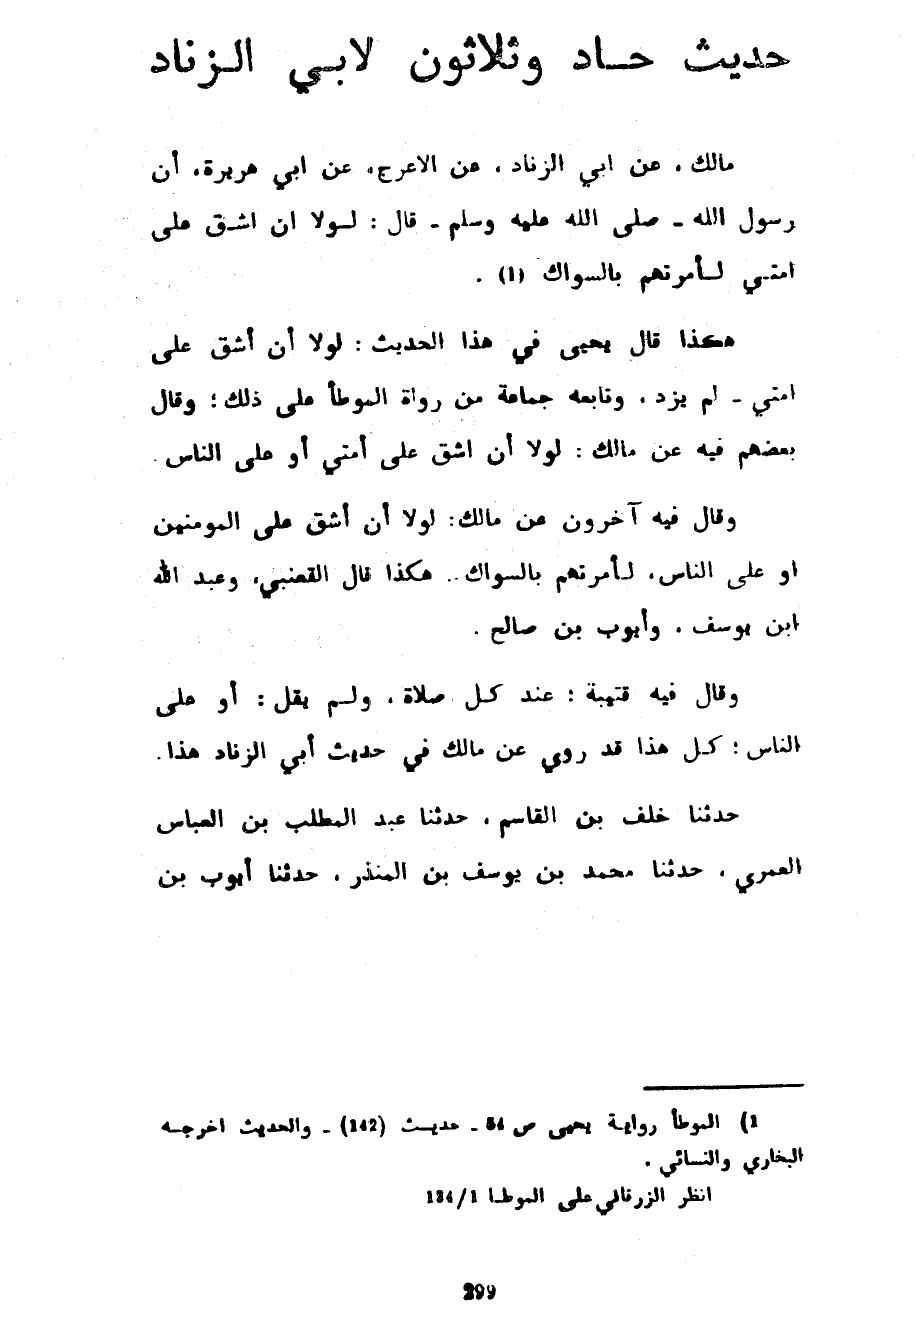 حديث حاد وثلاثون لابي الزناد
مالك ، عن ابي الزناد ، عن الاعرج، عن ابي هريرة، أن
رسول الله ـ صلى الله عليه وسلم ـ قال : لولا ان اشق على
امتي لأمرتهم بالسواك (1) .
هكذا قال يحيى في هذا الحديث : لولا أن أشق على
امتي ـ لم يزد ، وتابعه جماعة من رواة الموطأ على ذلك ؛ وقال
بعضهم فيه عن مالك : لولا أن اشق على أمتي أو على الناس .
وقال فيه آخرون عن مالك: لولا أن أشق على المومنين
او على الناس، لأمرتهم بالسواك .. هكذا قال القعنبي، وعبد الله
ابن يوسف ، وأيوب بن صالح .
وقال فيه قتيبة : عند كل صلاة ، ولم يقل : أو على
الناس ؛ كل هذا قد روي عن مالك في حديث أبي الزناد هذا .
حدثنا خلف بن القاسم ، حدثنا عبد المطلب بن العباس
العمري ، حدثنا محمد بن يوسف بن المنذر ، حدثنا أيوب بن
1) الموطأ رواية يحيى ص 54 ـ حديث (142) ـ والحديث اخرجه
البخاري والنسائي .
انظر الزرقاني على الموطا 134/1
299